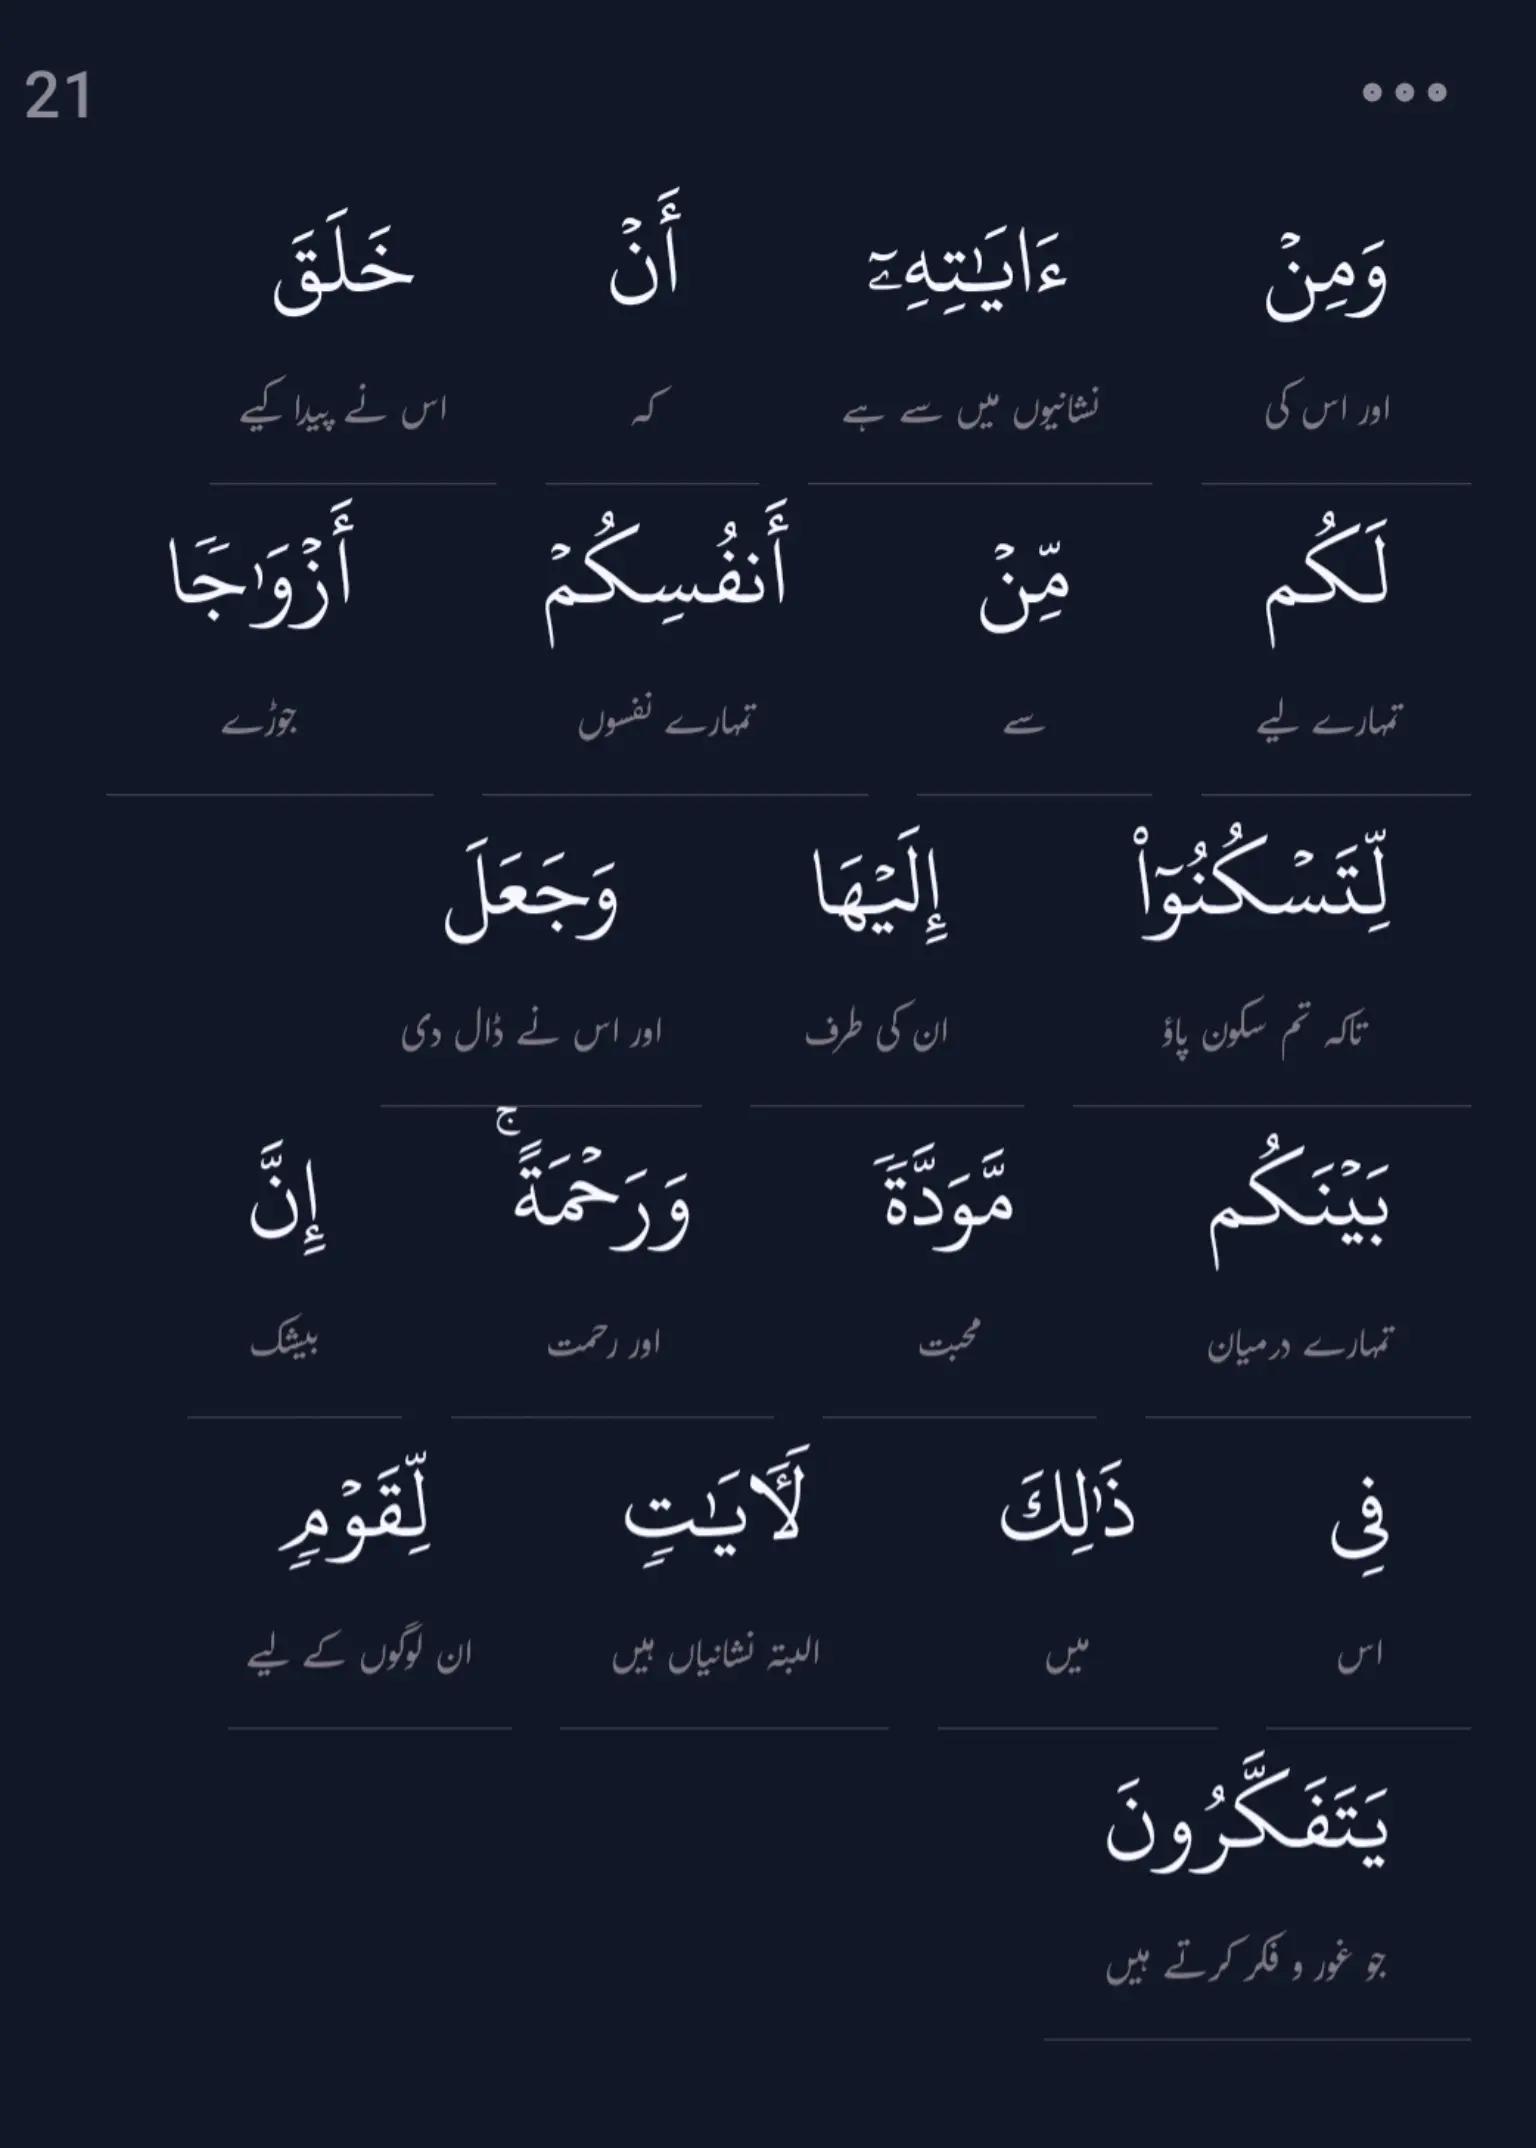 21
وَمِنۡ ءَايَٰتِهِۦٓ أَنۡ خَلَقَ
اور اس کی نشانیوں میں سے ہے کہ اس نے پیدا کیے
لَكُم مِّنۡ أَنفُسِكُمۡ أَزۡوَٰجٗا
تمہارے لیے سے تمہارے نفسوں جوڑے
لِّتَسۡكُنُوٓاْ إِلَيۡهَا وَجَعَلَ
تاکہ تم سکون پاؤ ان کی طرف اور اس نے ڈال دی
بَيۡنَكُم مَّوَدَّةٗ وَرَحۡمَةًۚ إِنَّ
تمہارے درمیان محبت اور رحمت بیشک
فِي ذَٰلِكَ لَأٓيَٰتٖ لِّقَوۡمٖ
اس میں البتہ نشانیاں ہیں ان لوگوں کے لیے
يَتَفَكَّرُونَ
جو غور و فکر کرتے ہیں